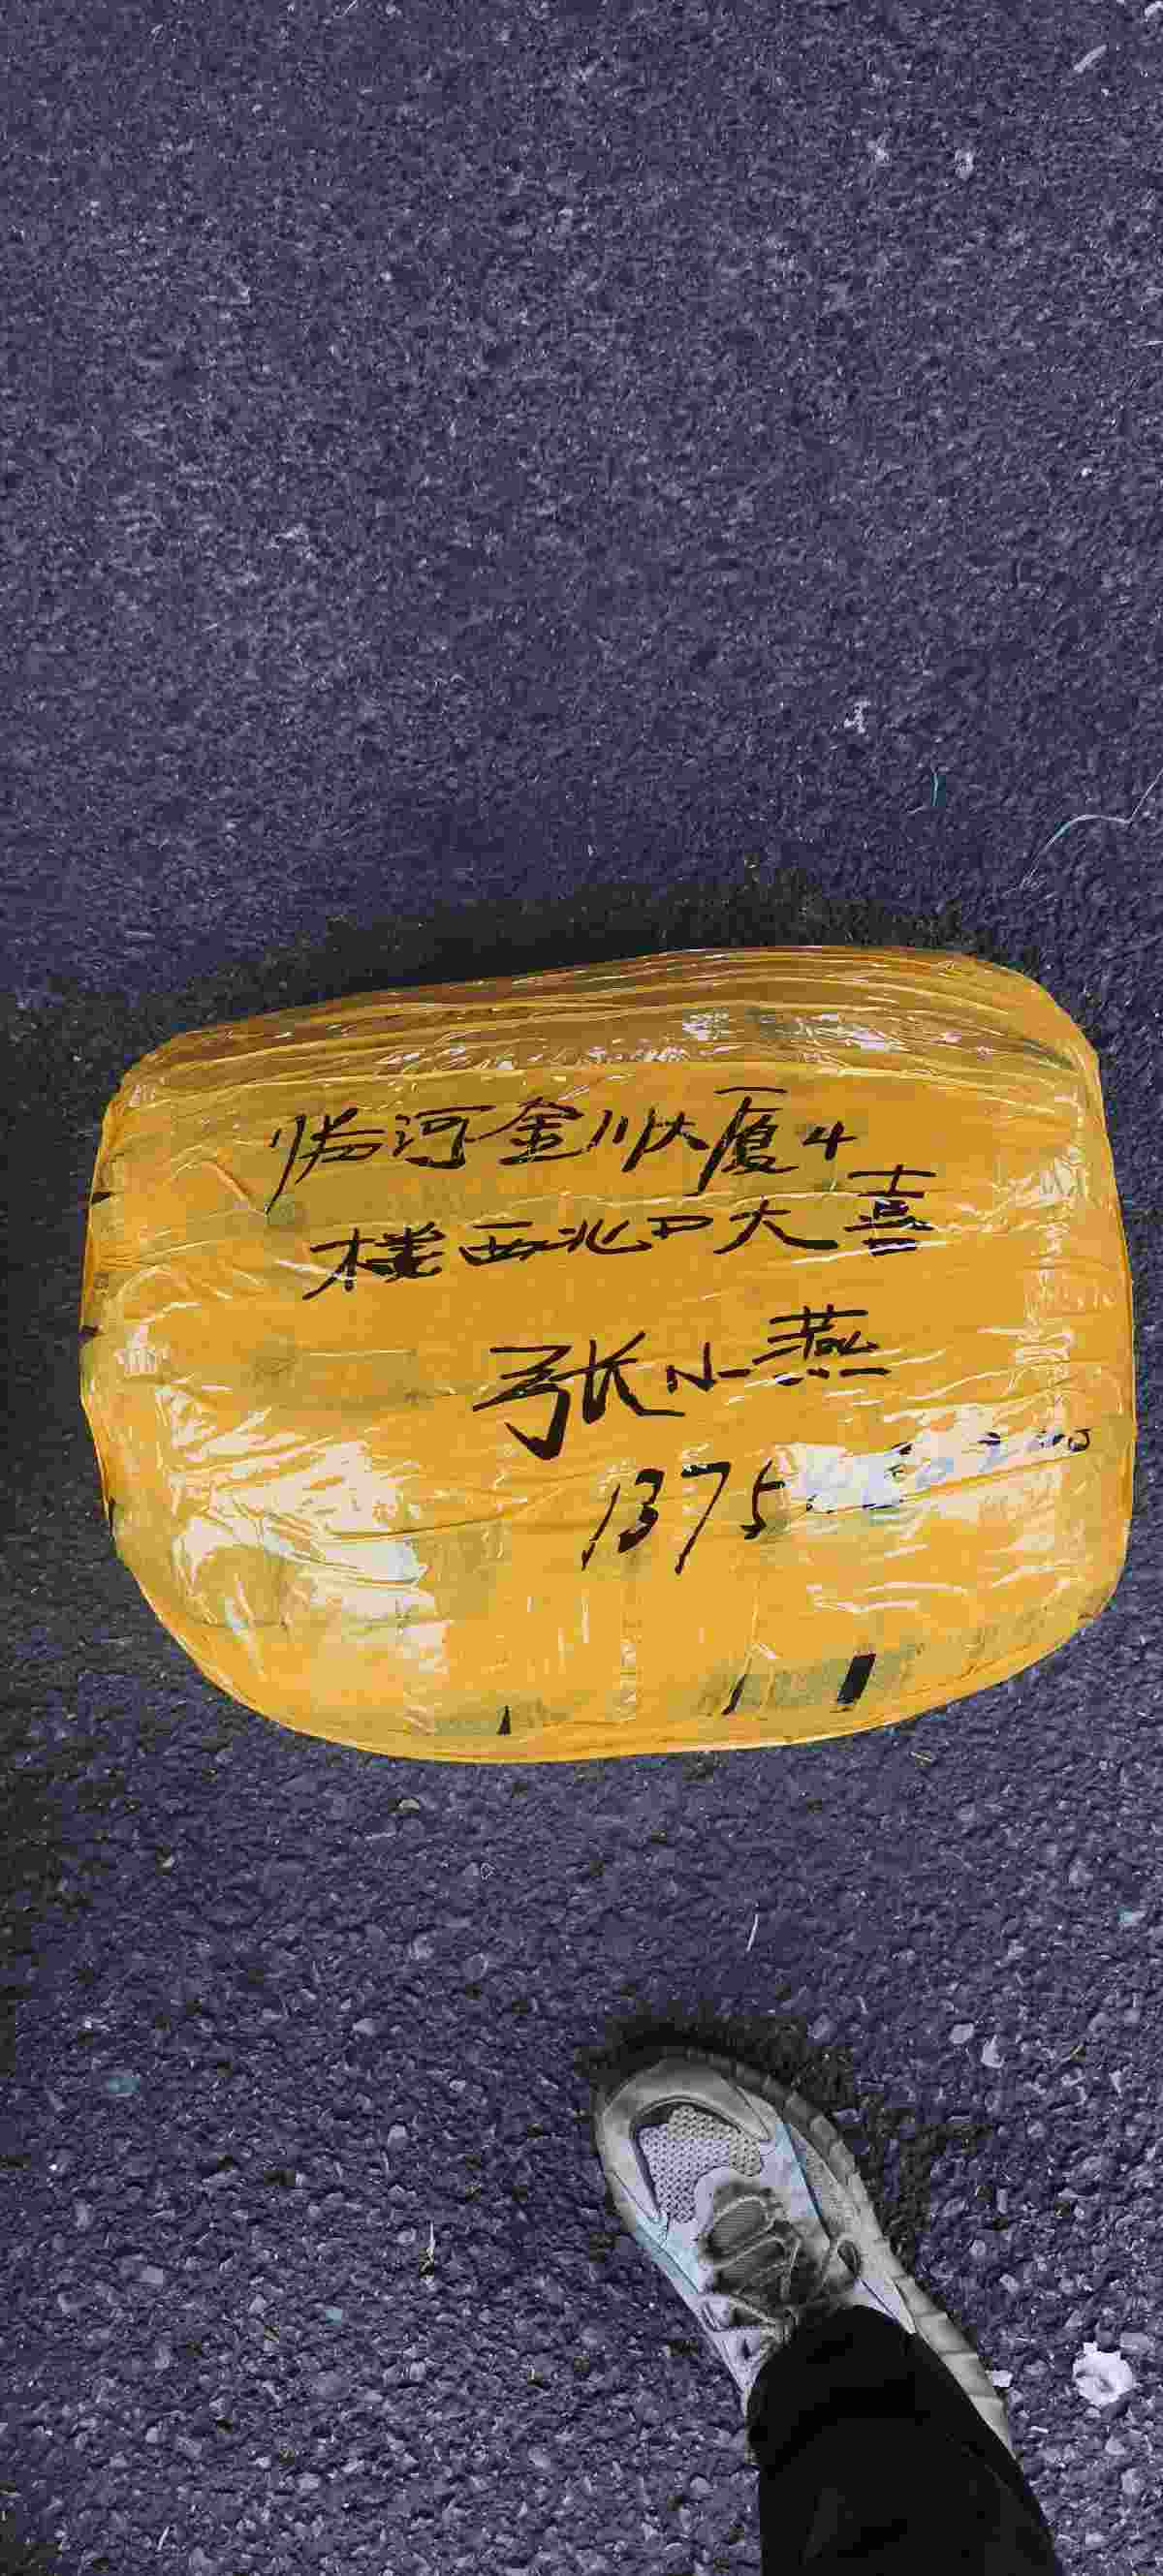 临河金川大厦4
楼西北口大喜
张小燕
1375